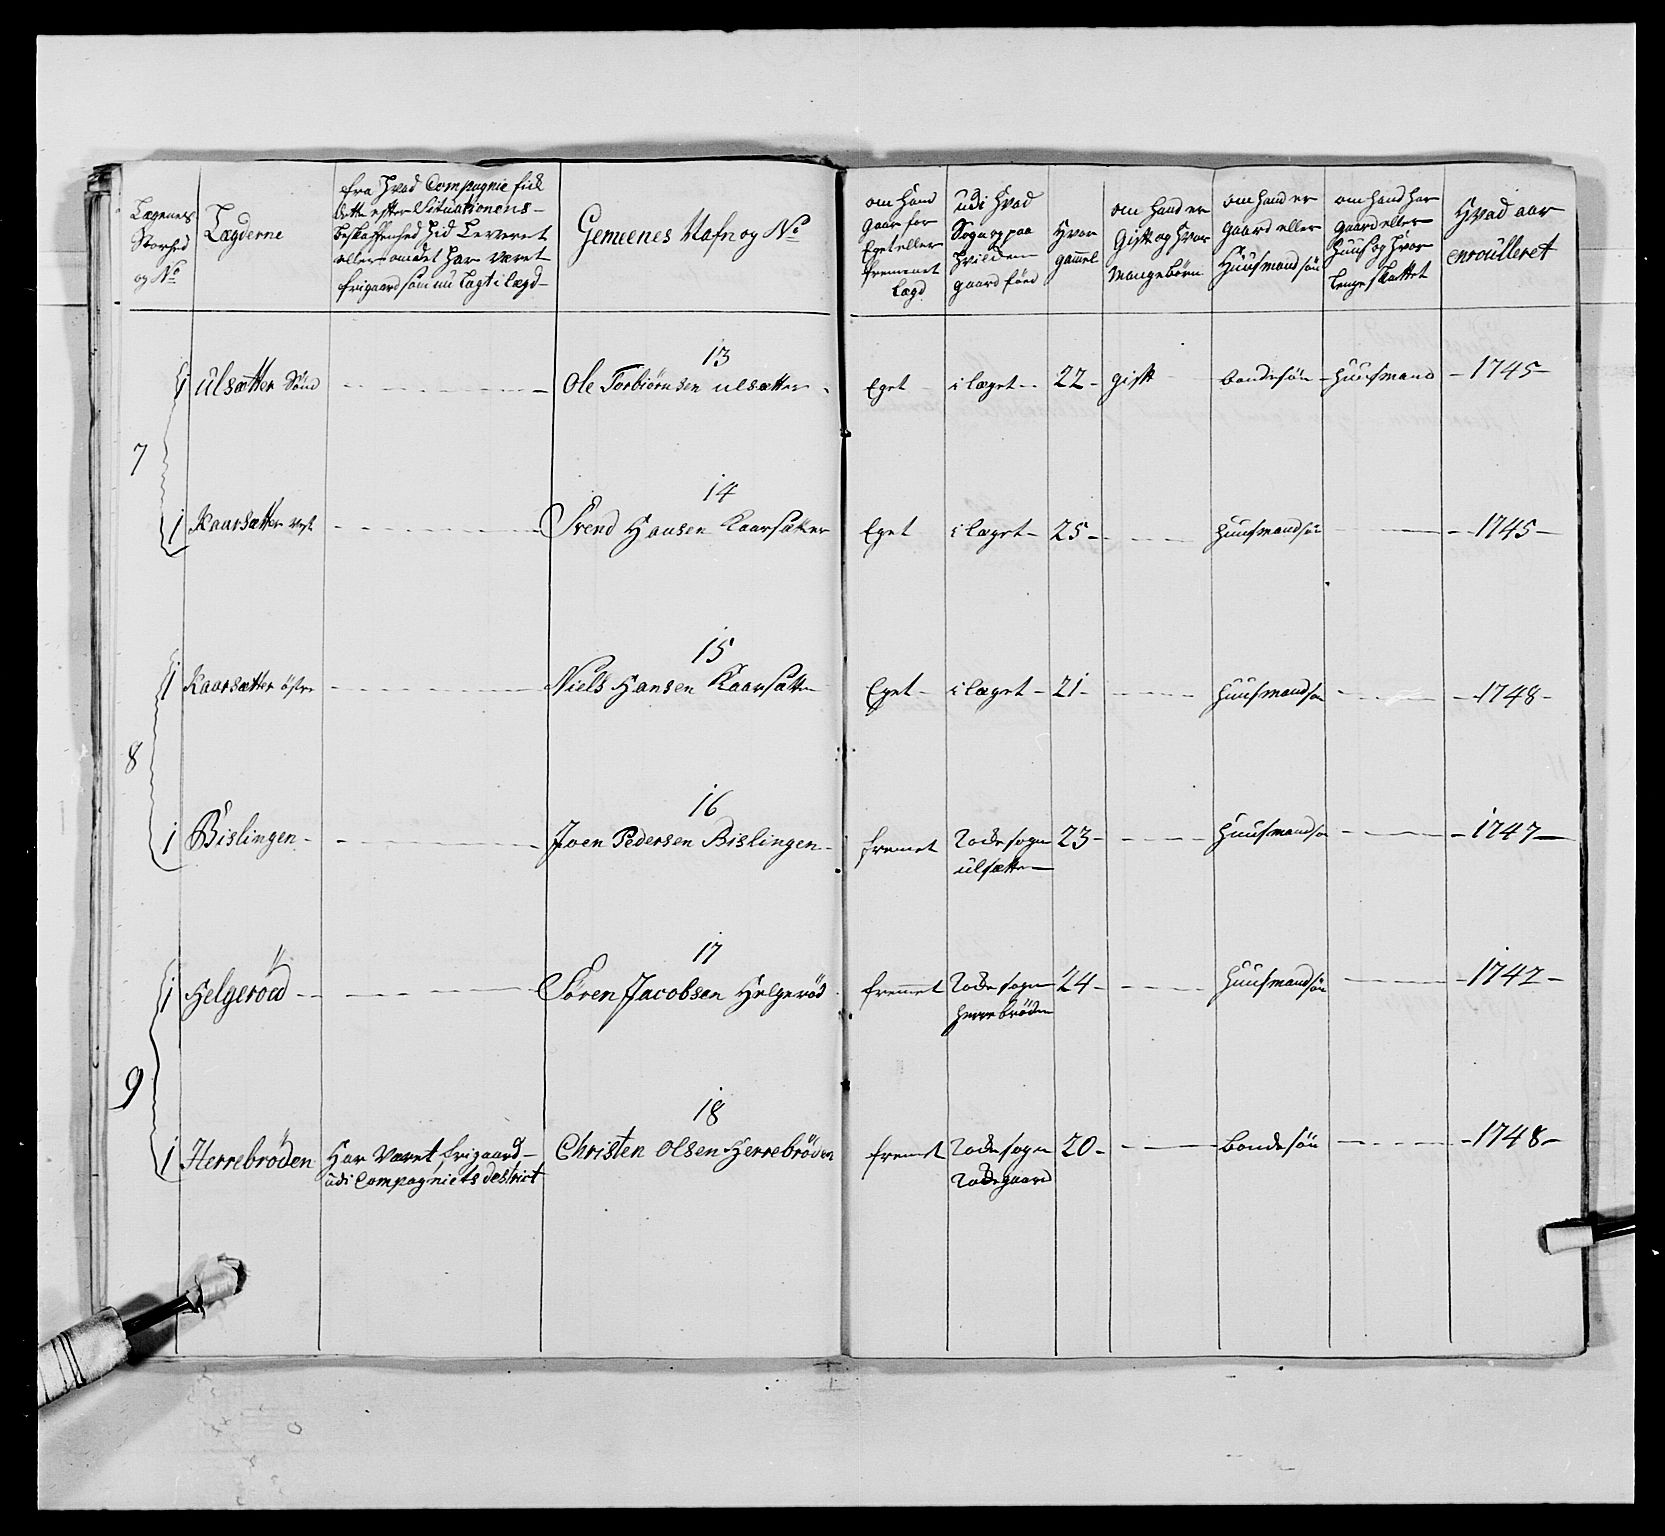 Lægenes
Storhed
og No
Lægderne
fra hvad Compagnie fick
dette efter Situationens
beskaffenhed hid Leveret
eller om det har været
frigaard som nu Lagt i Lægd
Gemeenes Nafn og No
om hand
gaar for
Eget eller
fremmet
Lægd
udi hvad
Sogn og paa
hvilcken
gaard föed
Hvor
gammel
om hand er
Gift og hvor
mange börn
om hand er
gaard eller
Huusmand sön
om hand har
gaard eller
Huus og hvor
Længe skattet
Hvad aar
enroulleret
7
1 Ulsætter Sönd
13
Ole Torbiörnsen Ulsætter
Eget i læget 22 gift bondesön huusmand 1745
1 Kaarsætter vest
14
Svend Hansen Kaarsætter
Eget i læget 25 huusmandsön 1745
8
1 Kaarsætter östre
15
Niels Hansen Kaarsætter
Eget i læget 21 huusmandsön 1748
1 Bislingen
16
Joen Pedersen Bislingen
fremet Rode sogn 23 huusmandsön 1747
ulsætter
9
1 Helgeröed
17
Sören Jacobsen Helgeröd
fremmet Rode sogn 24 huusmandsön 1742
herrebröden
1 Herrebröden
Har været frigaard
udi Compagniets destrict
18
Christen Olsen Herrebröden
fremet Rode sogn 20 bondesön 1748
Rodegaard